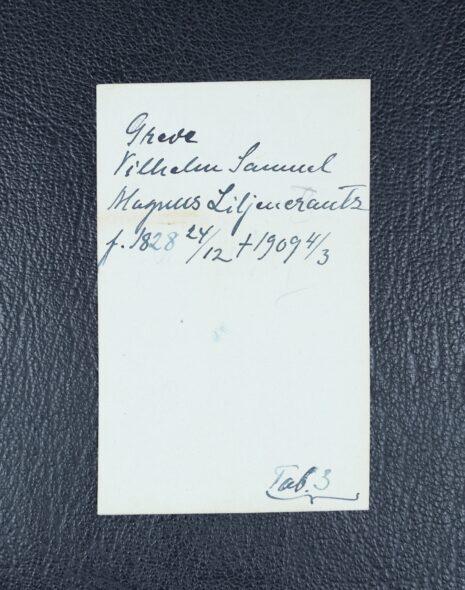 Greve
Vilhelm Samuel
Magnus Liljencrantz
f. 1828 24/12 † 1909 4/3
Tab. 3